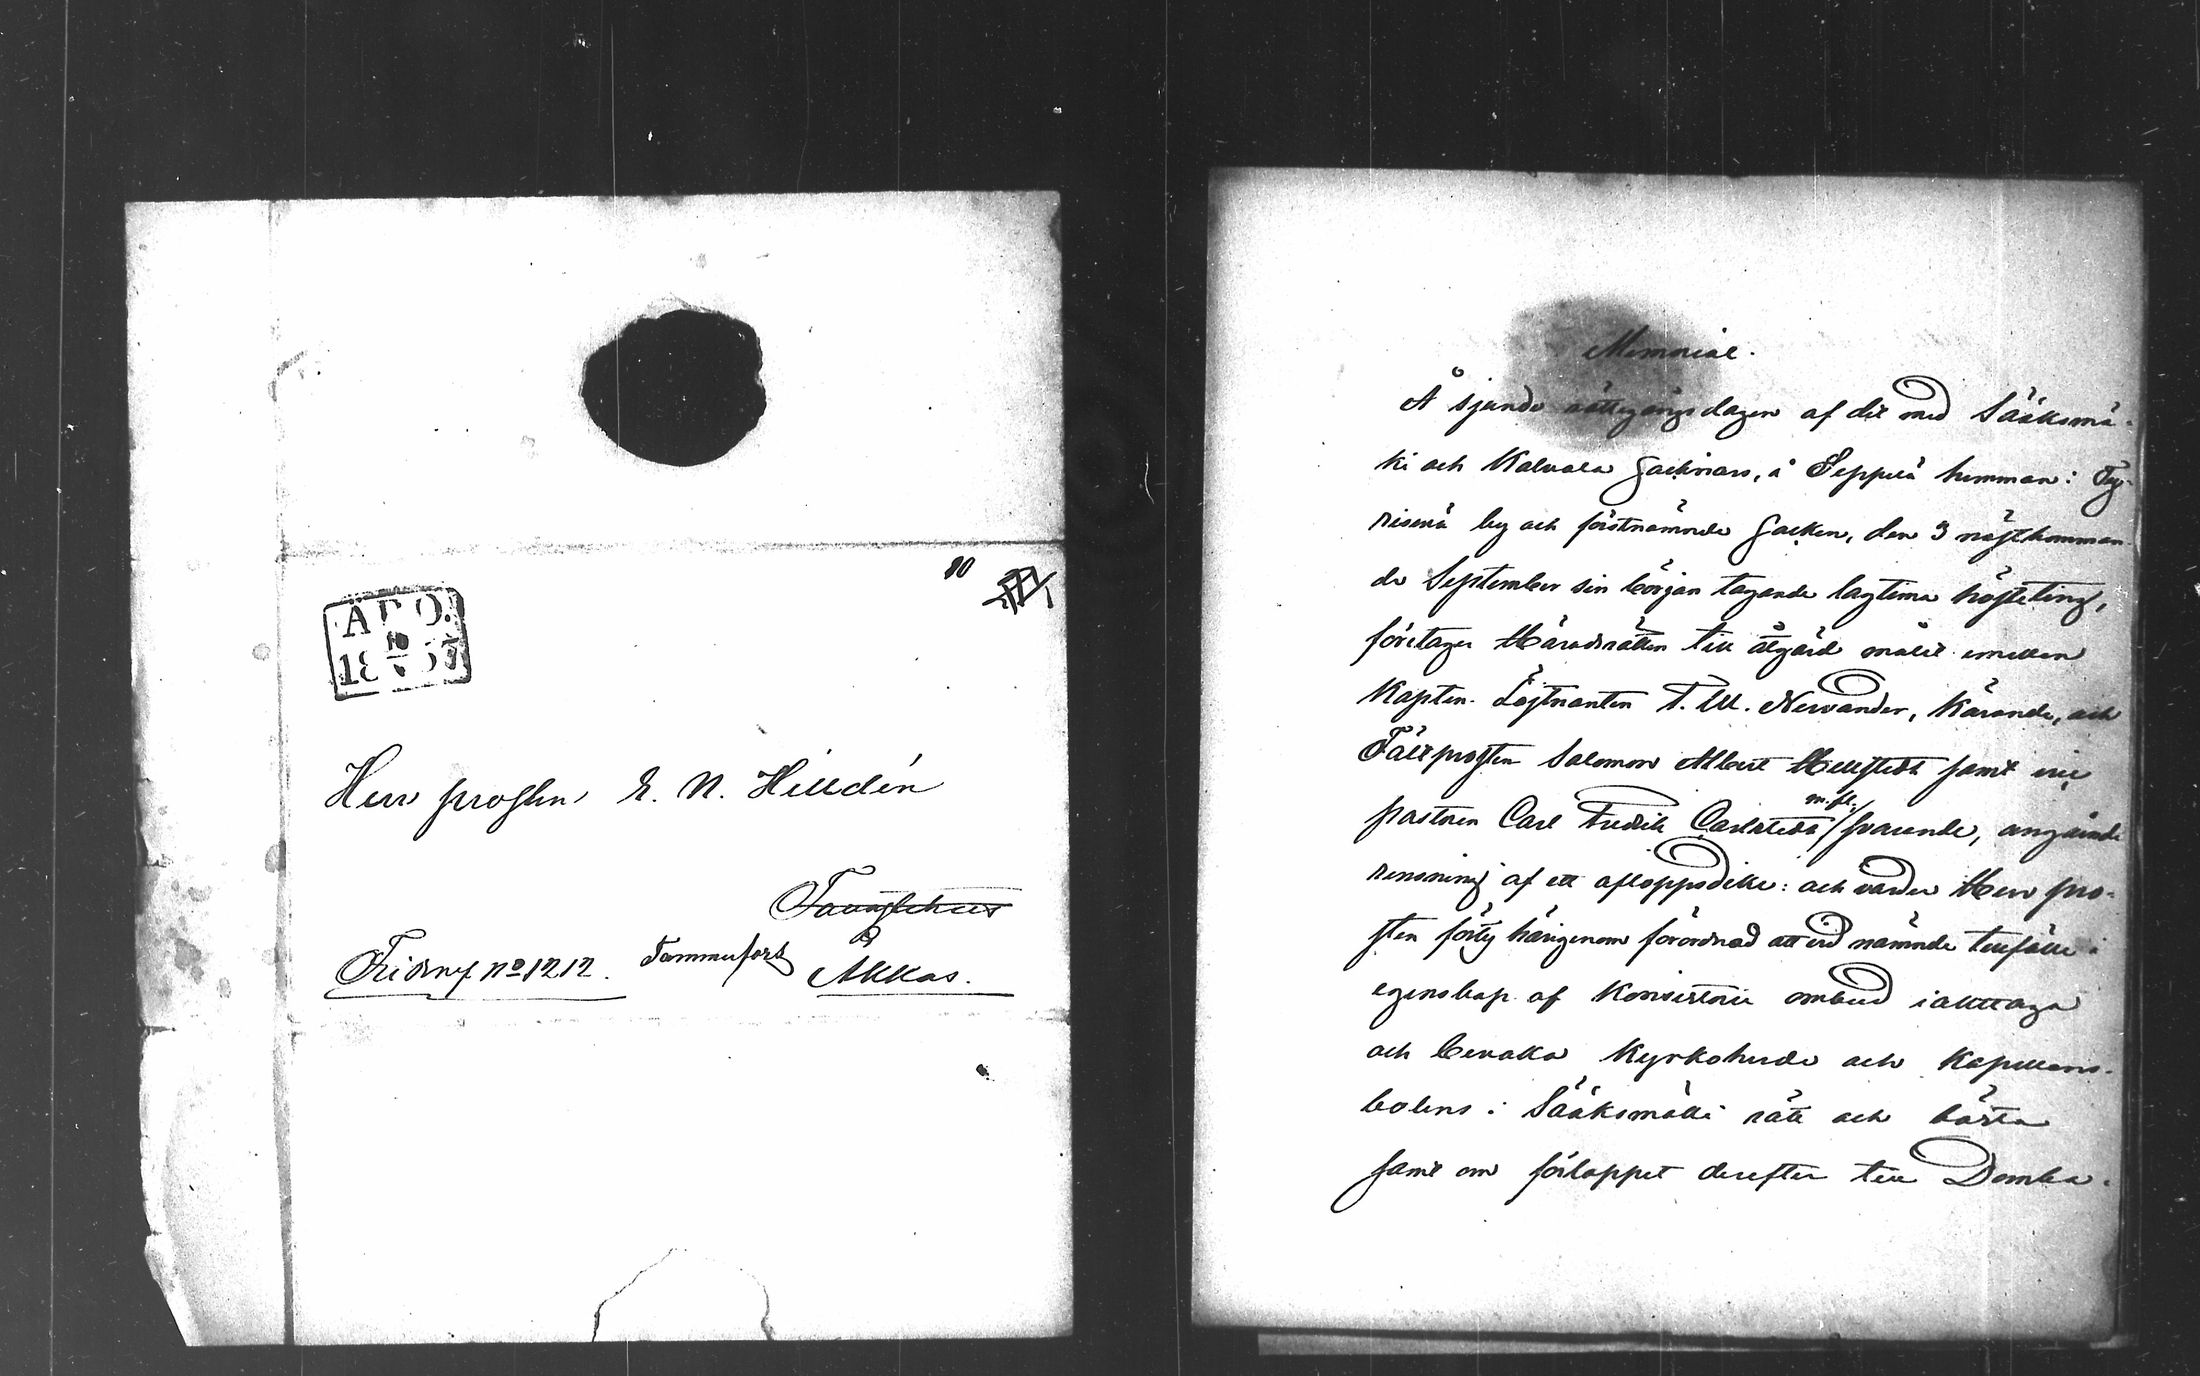 10
ÅBO.
10
18 57
Herr prosten E. N. Hilldén
Tavastehus
Tammerfors
Fribref No 1212.
Akkas.
Memorial.
Å sjunde rättegångsdagen af det med Sääksmä-
ki och Kalvola socknars, å Seppälä hemman i
by och förstnämnde socken, den 3 nästkomman-
de September sin början tagande lagtima höste ting,
företages Häradsrätten till åtgärd målet emellan
Kapten-Löjtnanten T. W. Nervander, Kärande, och
Fältprosten Salomon Albert Hellstedt samt vice
m.fl.
pastoren Carl Fredrik Carlstedt / svarande, angående
rensning af ett afloppsdike: och varder Herr pro-
sten förty härigenom förordnad att vid nämnde tillfälle i
egenskap af Konsistorii ombud iakttaga
och bevaka Kyrkoherde och Kapellans-
bolens i Sääksmäki rätt och bästa
samt om förloppet derefter till Domka-